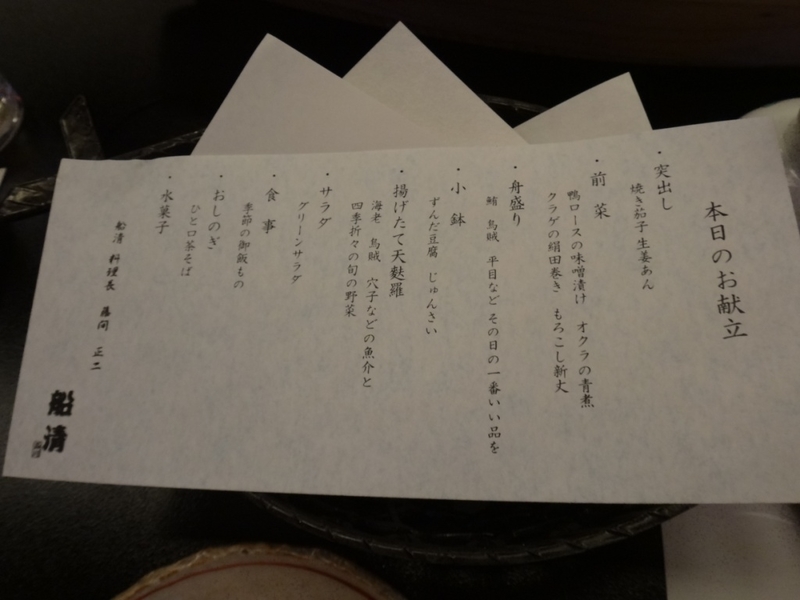 本日のお献立
・突出し
焼き茄子 生姜あん
・前菜
鴨ロースの味噌漬け オクラの青煮
クラゲの絹田巻き もろこし新丈
・舟盛り
鮪 烏賊 平目など その日の一番いい品を
・小鉢
ずんだ豆腐 じゅんさい
・揚げたて天麩羅
海老 烏賊 穴子などの魚介と
四季折々の旬の野菜
・サラダ
グリーンサラダ
・食事
季節の御飯もの
・おしのぎ
ひと口茶そば
・水菓子
船清 料理長 藤間 正二
船清